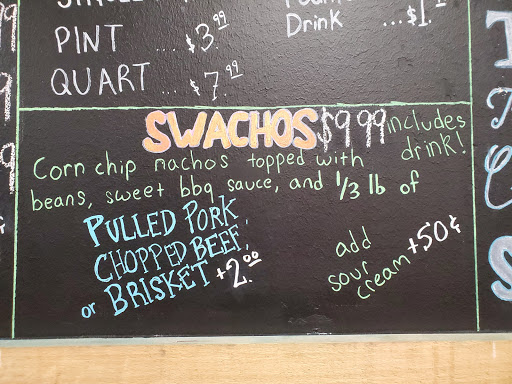 PINT ... $3.99
Drink ... $1.
QUART ... $7.99
SWACHOS $9.99 includes drink!
Corn chip nachos topped with
beans, sweet bbq sauce, and 1/3 lb of
PULLED PORK,
CHOPPED BEEF,
or BRISKET +2.00
add
sour
cream +50¢